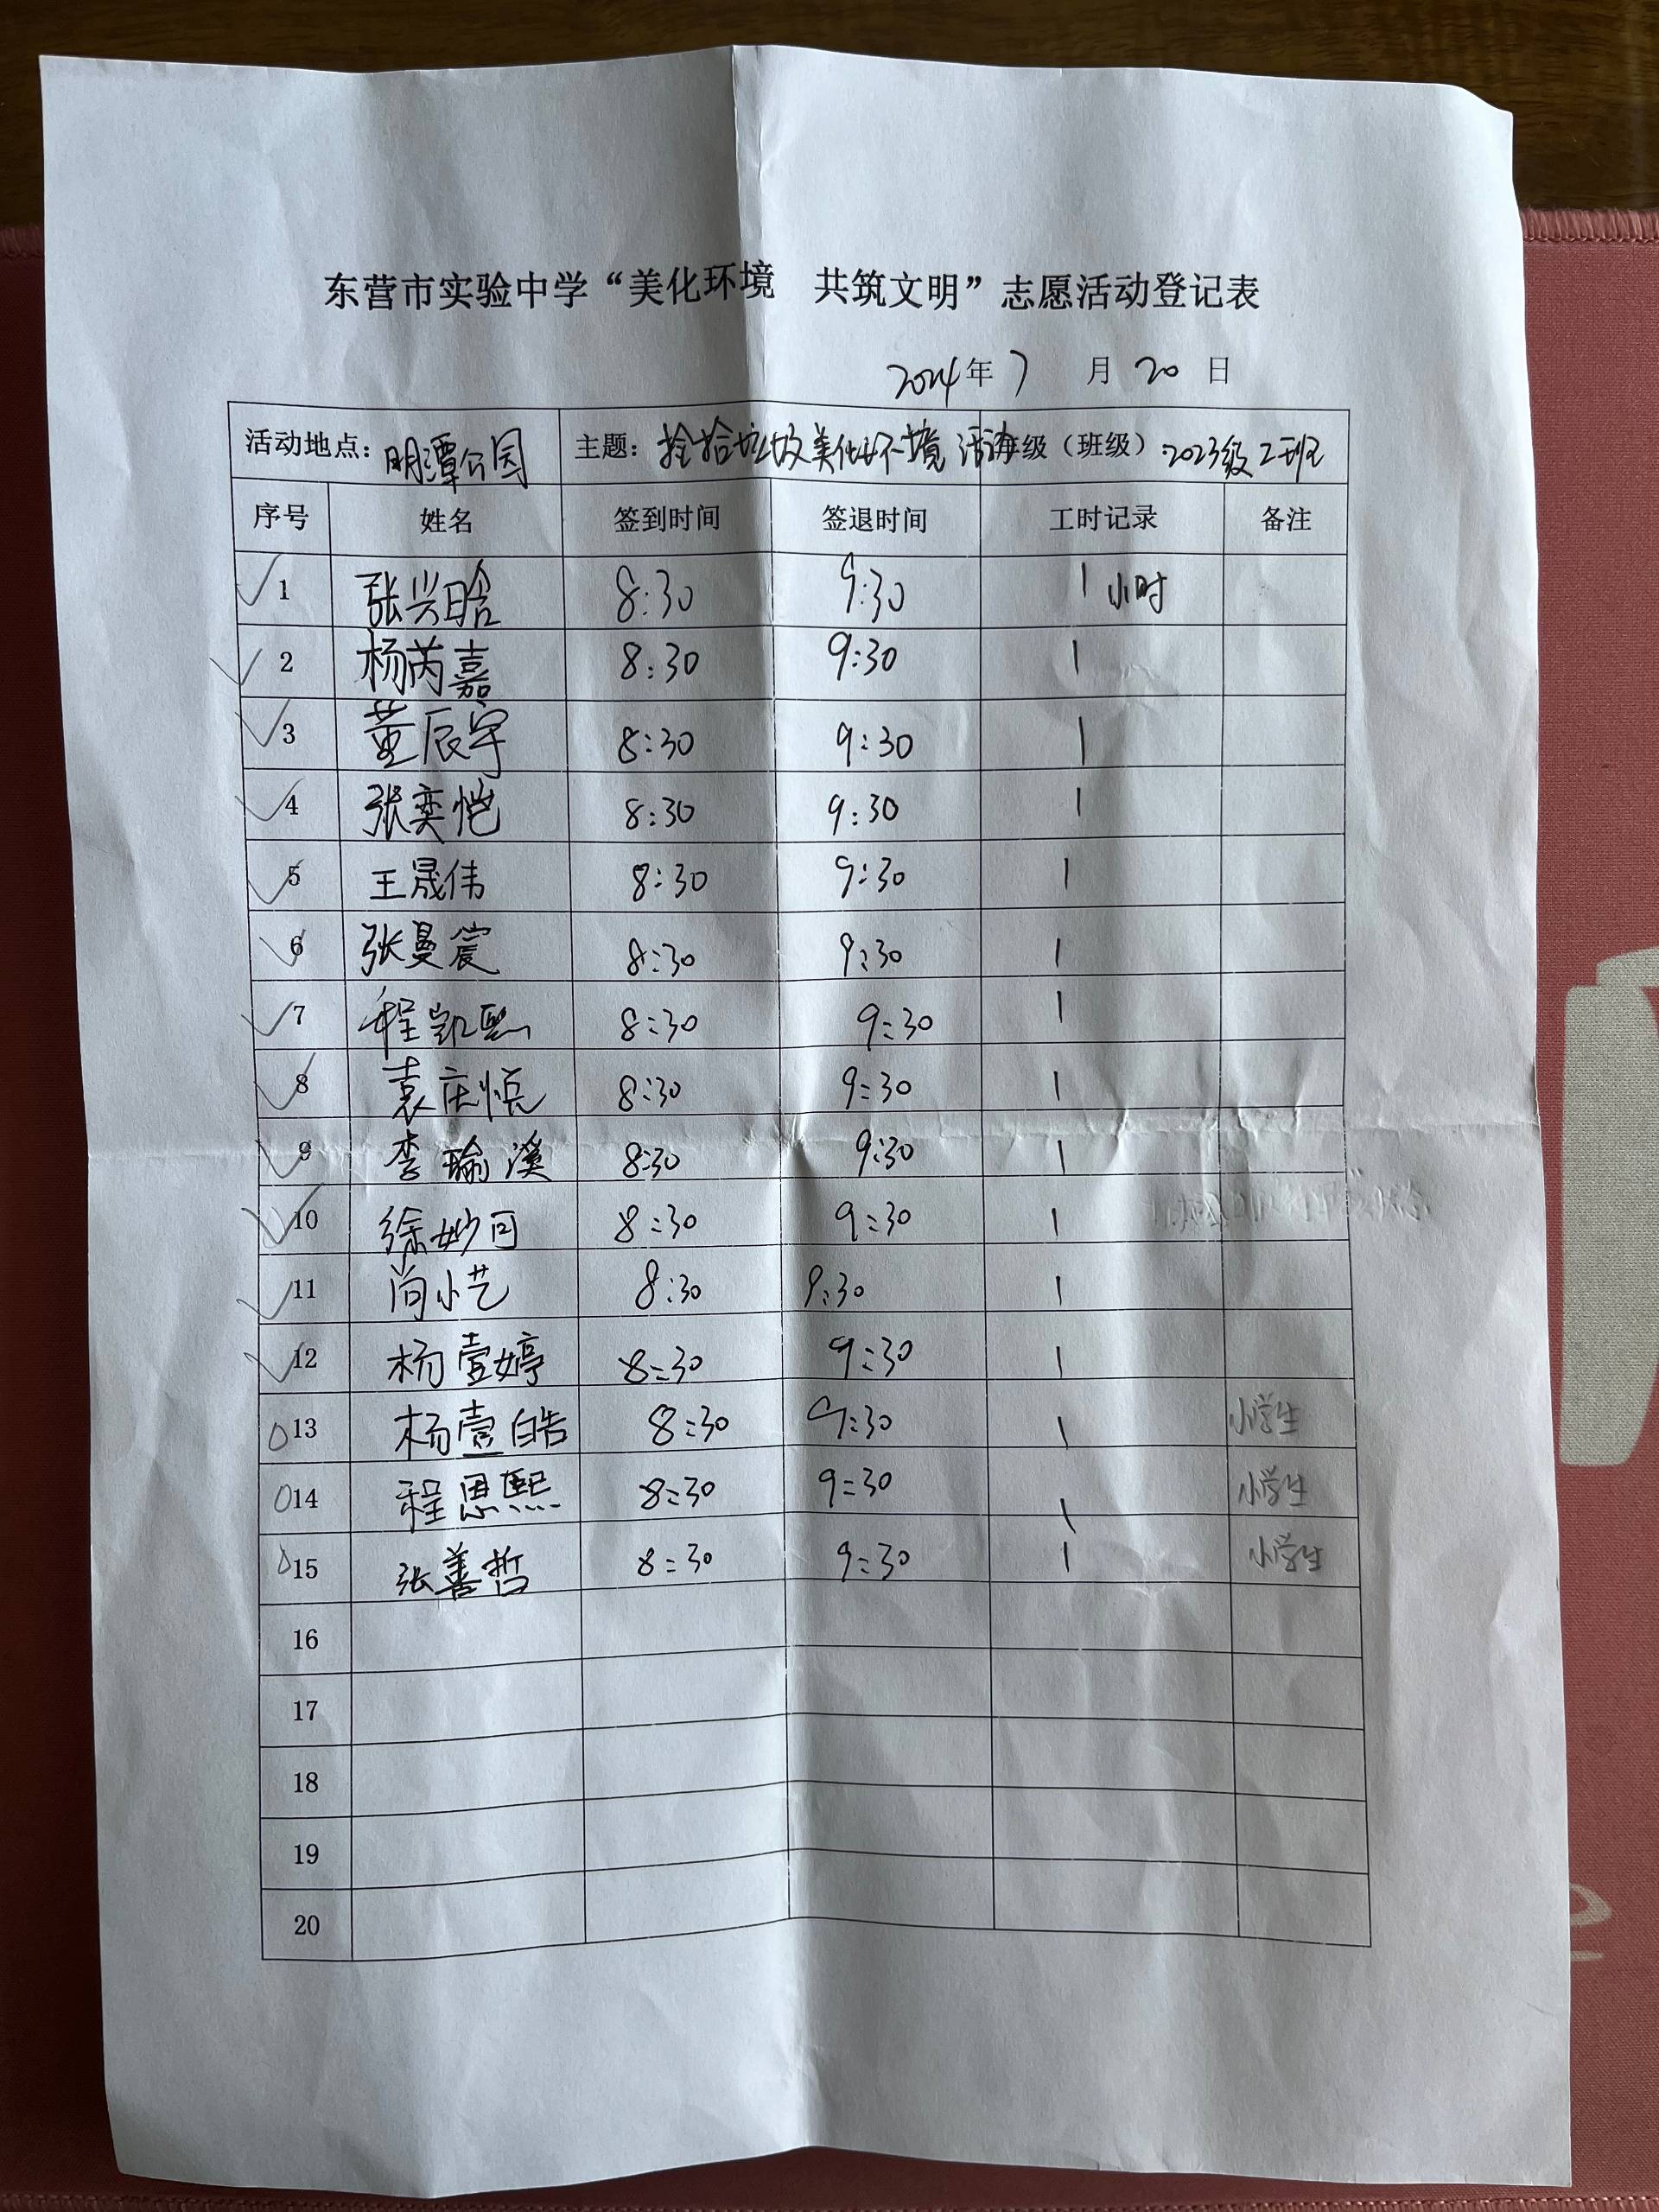 东营市实验中学“美化环境 共筑文明”志愿活动登记表
2024年7月20日
活动地点：明潭公园 主题：捡拾垃圾美化环境活动 年级（班级）：2023级2班
序号 姓名 签到时间 签退时间 工时记录 备注
1 张兴晗 8:30 9:30 1小时
2 杨芮嘉 8:30 9:30 1
3 董辰宇 8:30 9:30 1
4 张奕恺 8:30 9:30 1
5 王晟伟 8:30 9:30 1
6 张曼宸 8:30 9:30 1
7 程凯熙 8:30 9:30 1
8 袁庆恒 8:30 9:30 1
9 李瑜溪 8:30 9:30 1
10 徐妙可 8:30 9:30 1
11 尚小艺 8:30 9:30 1
12 杨壹婷 8:30 9:30 1
13 杨壹皓 8:30 9:30 1 小学生
14 程思熙 8:30 9:30 1 小学生
15 张善哲 8:30 9:30 1 小学生
16
17
18
19
20